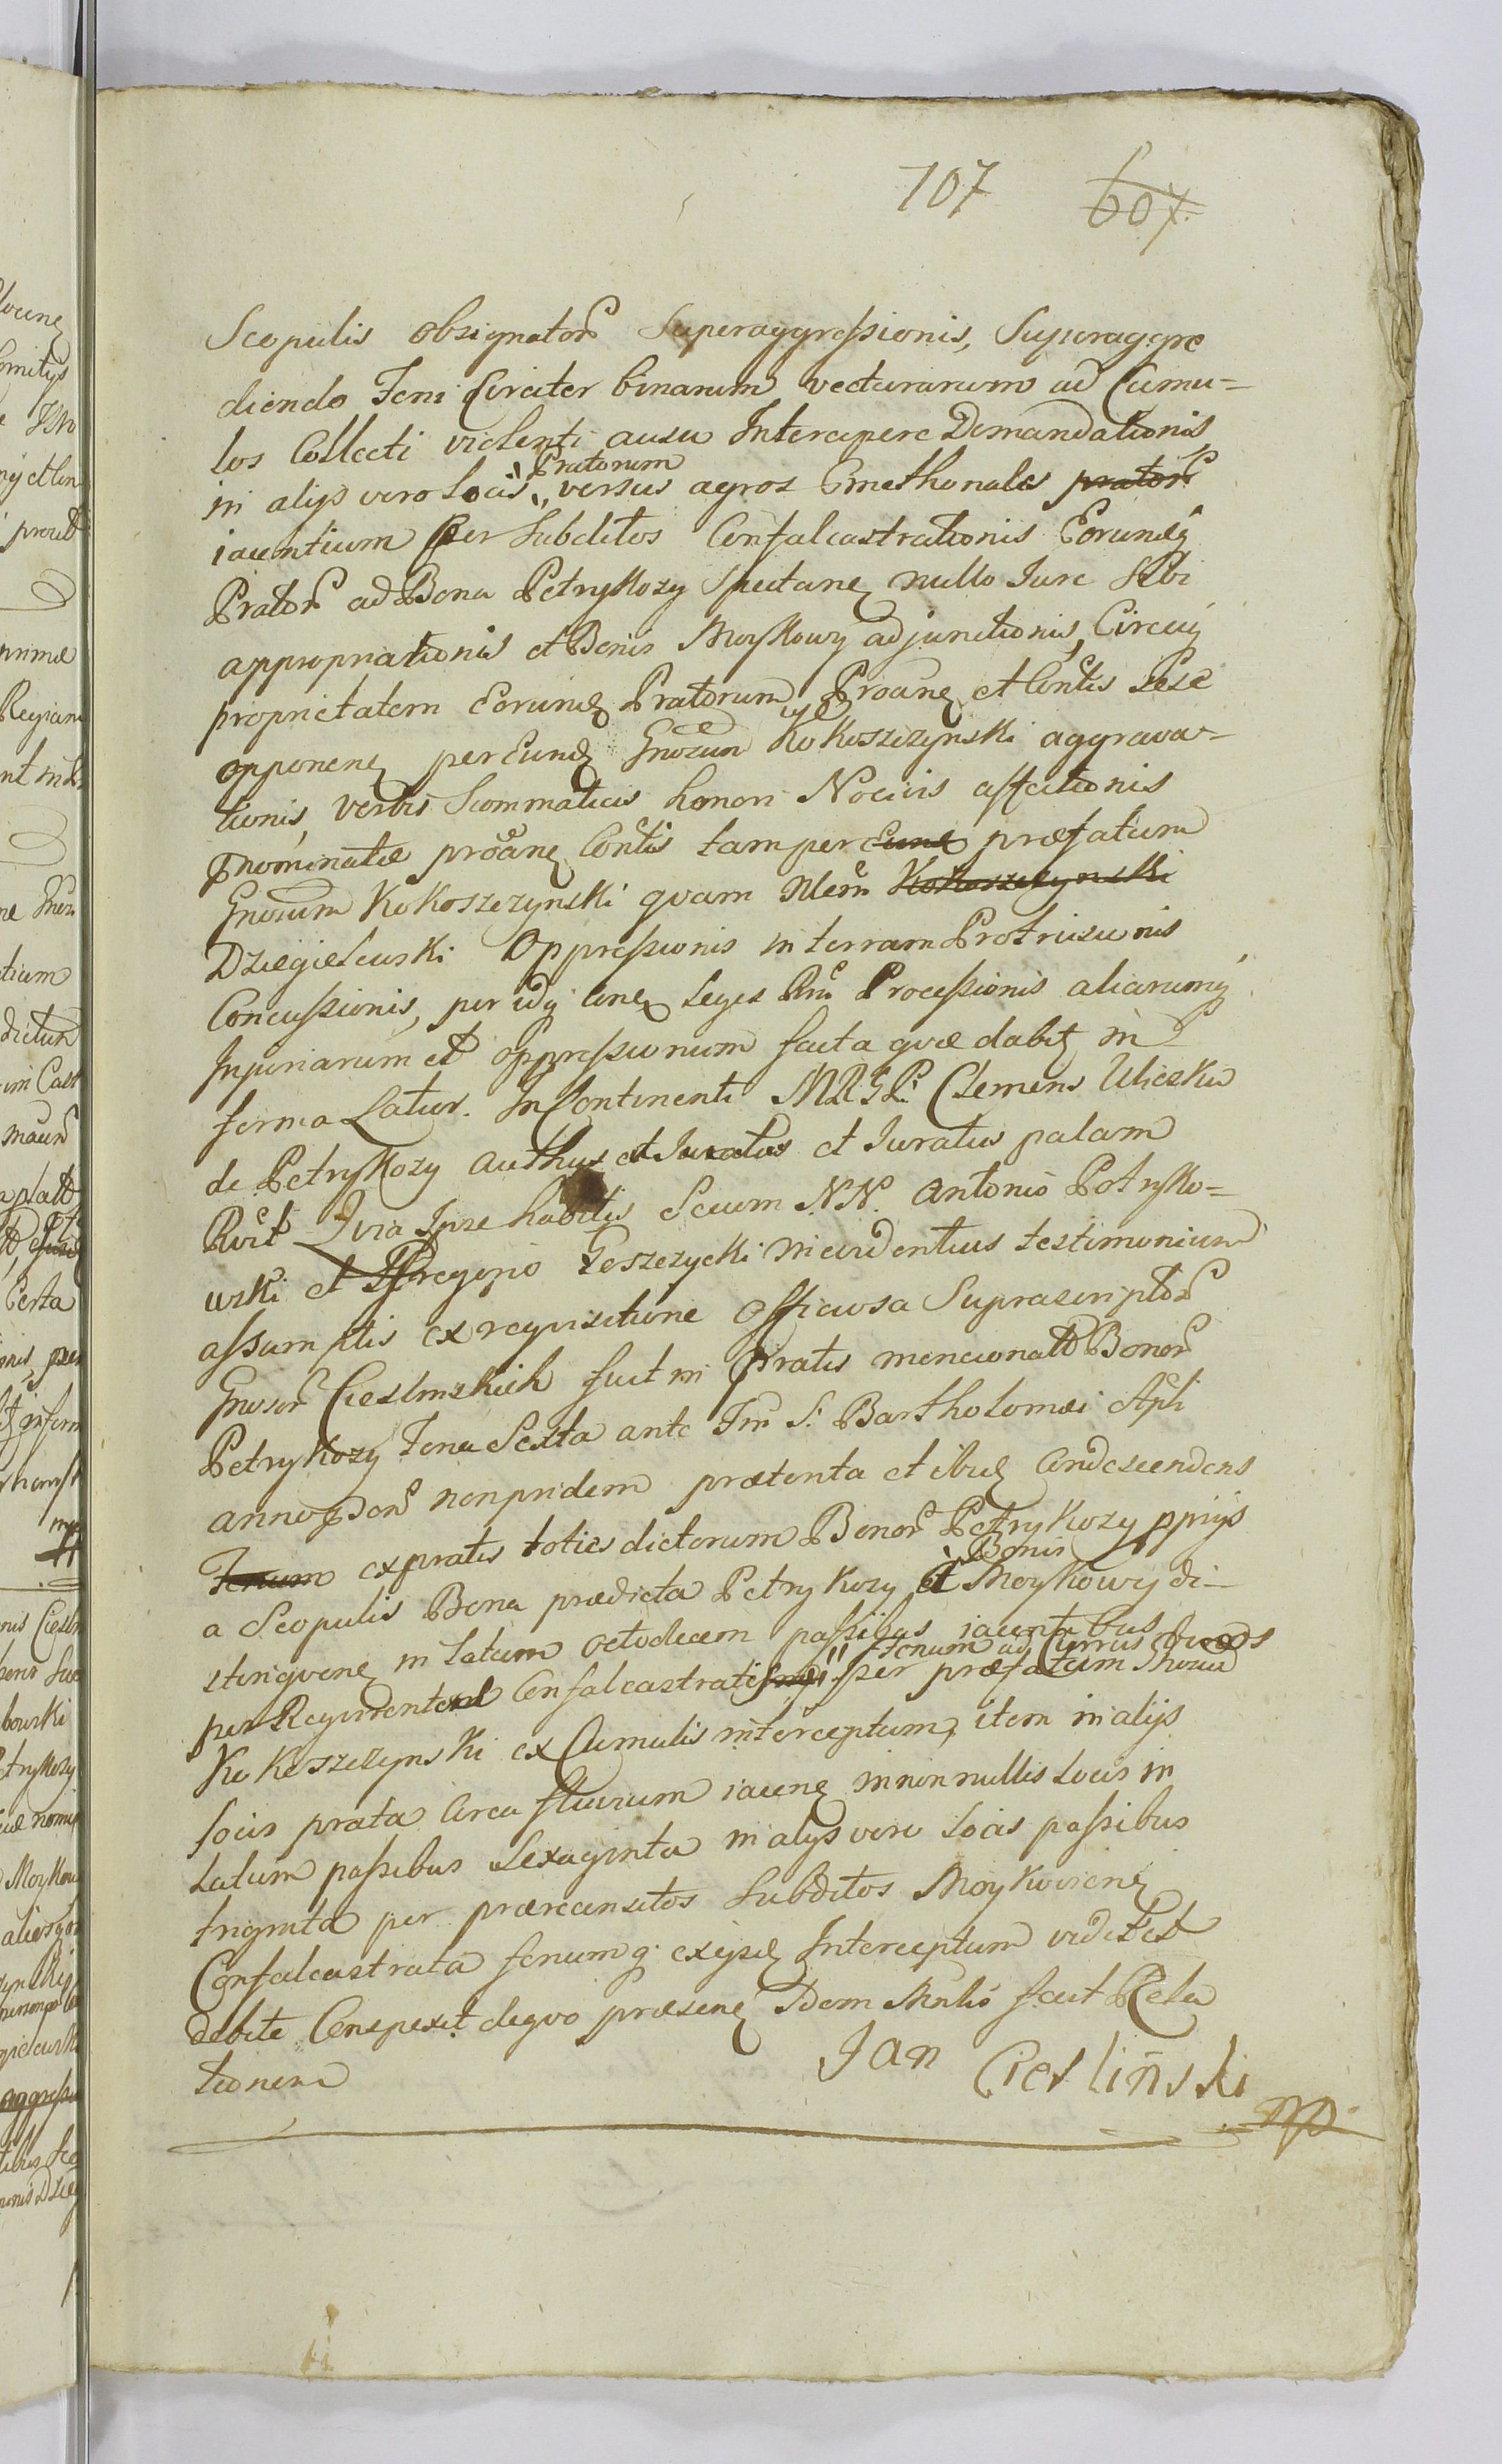 107 607
Scopulis obsignator Superaggressionis, Superaggre
diendo Feni Circiter binarum vecturarum ad Cumu=
los Collecti violenti ausu Intercipere Demandationis,
Pratorum
in alijs vero Locis versus agros Cmethonales prator
iacentium per Subditos Confalcastrationis Eorundq
Prator ad Bona Petrykozy Spectane nullo Iure Sibi
appropriationis et Bonis Moykowy adjunctionis, Circaq
proprietatem Eorund Pratorum Proane et Contis sese
opponene per Eund Gnosum Kokoszczynski aggrava=
tionis, verbis Scommaticis honori Nocivis affectionis
nominatæ proane Contis tam per Eund præfatum
Gnosum Kokoszczynski quam Kokoszczynski
Dzięgielewski Oppressionis in terram Protrusionis
Concussionis, per idq Leges Processionis aliarumq
Injuriarum et oppressionum facta quæ dabit in
forma Latior. In Continenti Clemens Uliczka
de Petrykozy Authus et Iuratus et Iuratus palam
Quia Ipse habitis Secum N.N. Antonio Potryko=
wski et Gregorio Feszczycki in evidentius testimonium
assumptis ex requisitione Officiosa Suprascriptor
Gnosor Cieslinskich fuit in Pratis mencionatt Bonor
Petrykozy Feria Sexta ante S. Bartholomæi Apli
anno non pridem prætenta et ibid Condescendens
Fenum ex pratis toties dictorum Bonor Petrykozy ppriys
Bonis
a Scopulis Bona prædicta Petrykozy et Moykowy di=
stingvene in Latum octodecem passibus iacentibus
Fenum ad Currus
per Confalcastratis per præfatum Gnosum
Kokoszczynski ex Cumulis interceptum, item in alijs
locis prata Circa fluvium iacene in non nullis Locis in
Latum passibus Sexaginta in alys vero Locis passibus
triginta per præcensitos Subditos Moykowiene
Confalcastrata fenumq exijsd Interceptum vidit et
debite Conspexit de quo præsene Idem fecit Rela
tionem
Jan Cieslinski
mp